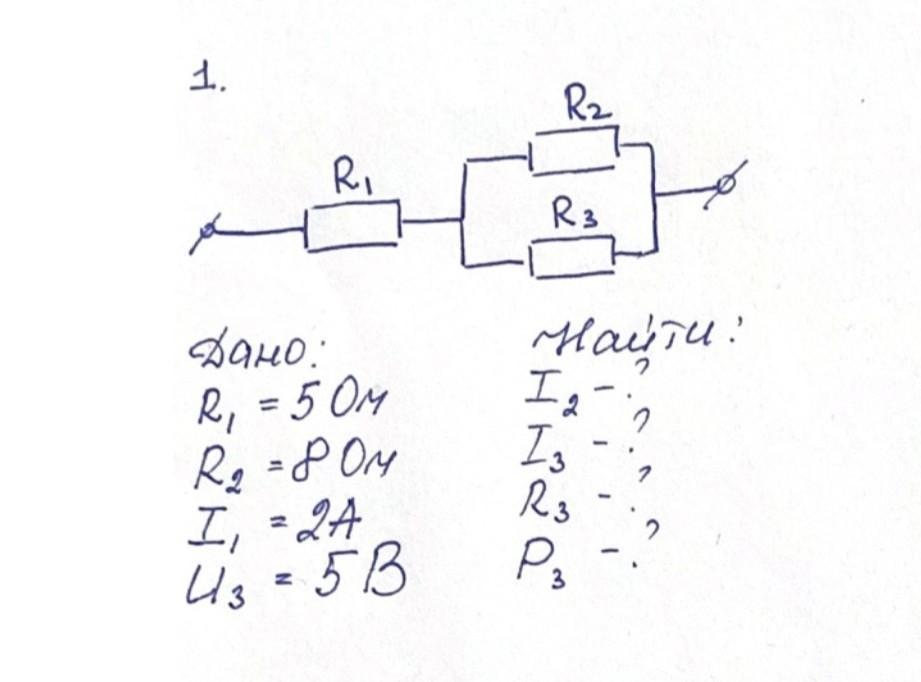 1.
R₂
R₁
R₃
Дано:
R₁ = 5 Ом
R₂ = 8 Ом
I₁ = 2А
U₃ = 5 В
Найти:
I₂ - ?
I₃ - ?
R₃ - ?
P₃ - ?